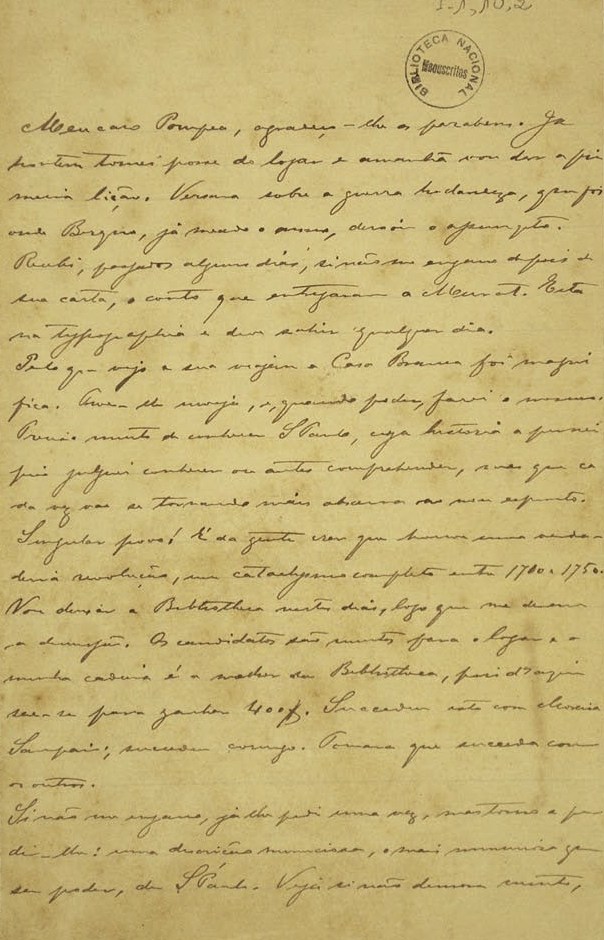 I-1,10,2
BIBLIOTECA NACIONAL
Manuscritos
Meu caro Pompea, agradeço-lhe os parabens. Já
hontem tomei posse do logar e amanhã vou dar a pri
meira lição. Versará sobre a guerra hollandeza, que foi
onde Berquó, já meado o anno, deixou o assumpto.
Recebi, passados alguns dias, si não me engano depois de
sua carta, o conto que entregaram a Murat. Está
na typographia e deve sahir qualquer dia.
Pelo que vejo a sua viagem a Casa Branca foi magni
fica. Tive-lhe inveja, e, quando puder, farei o mesmo.
Preciso muito de conhecer S Paulo, cuja historia a princi
pio julguei conhecer ou antes comprehender, mas que ca
da vez vae se tornando mais obscura ao meu espirito.
Singular povo! É da gente crer que houve uma verda-
deira revolução, um cataclysmo completo entre 1700 e 1750.
Vou deixar a Bibliotheca nestes dias, logo que me derem
a demissão. Os candidatos são muitos para o logar e a
minha cadeira é a melhor da Bibliotheca, pois d'aqui
sae-se para ganhar 400$. Succedeu isto com Moreira
Sampaio; succedeu comigo. Tomara que succeda com
os outros.
Si não me engano, já lhe pedi uma vez, mas torno a pe
dir-lhe: uma descrição minuciosa, o mais minuciosa que
seu poder, de S Paulo. Veja si não demora muito,